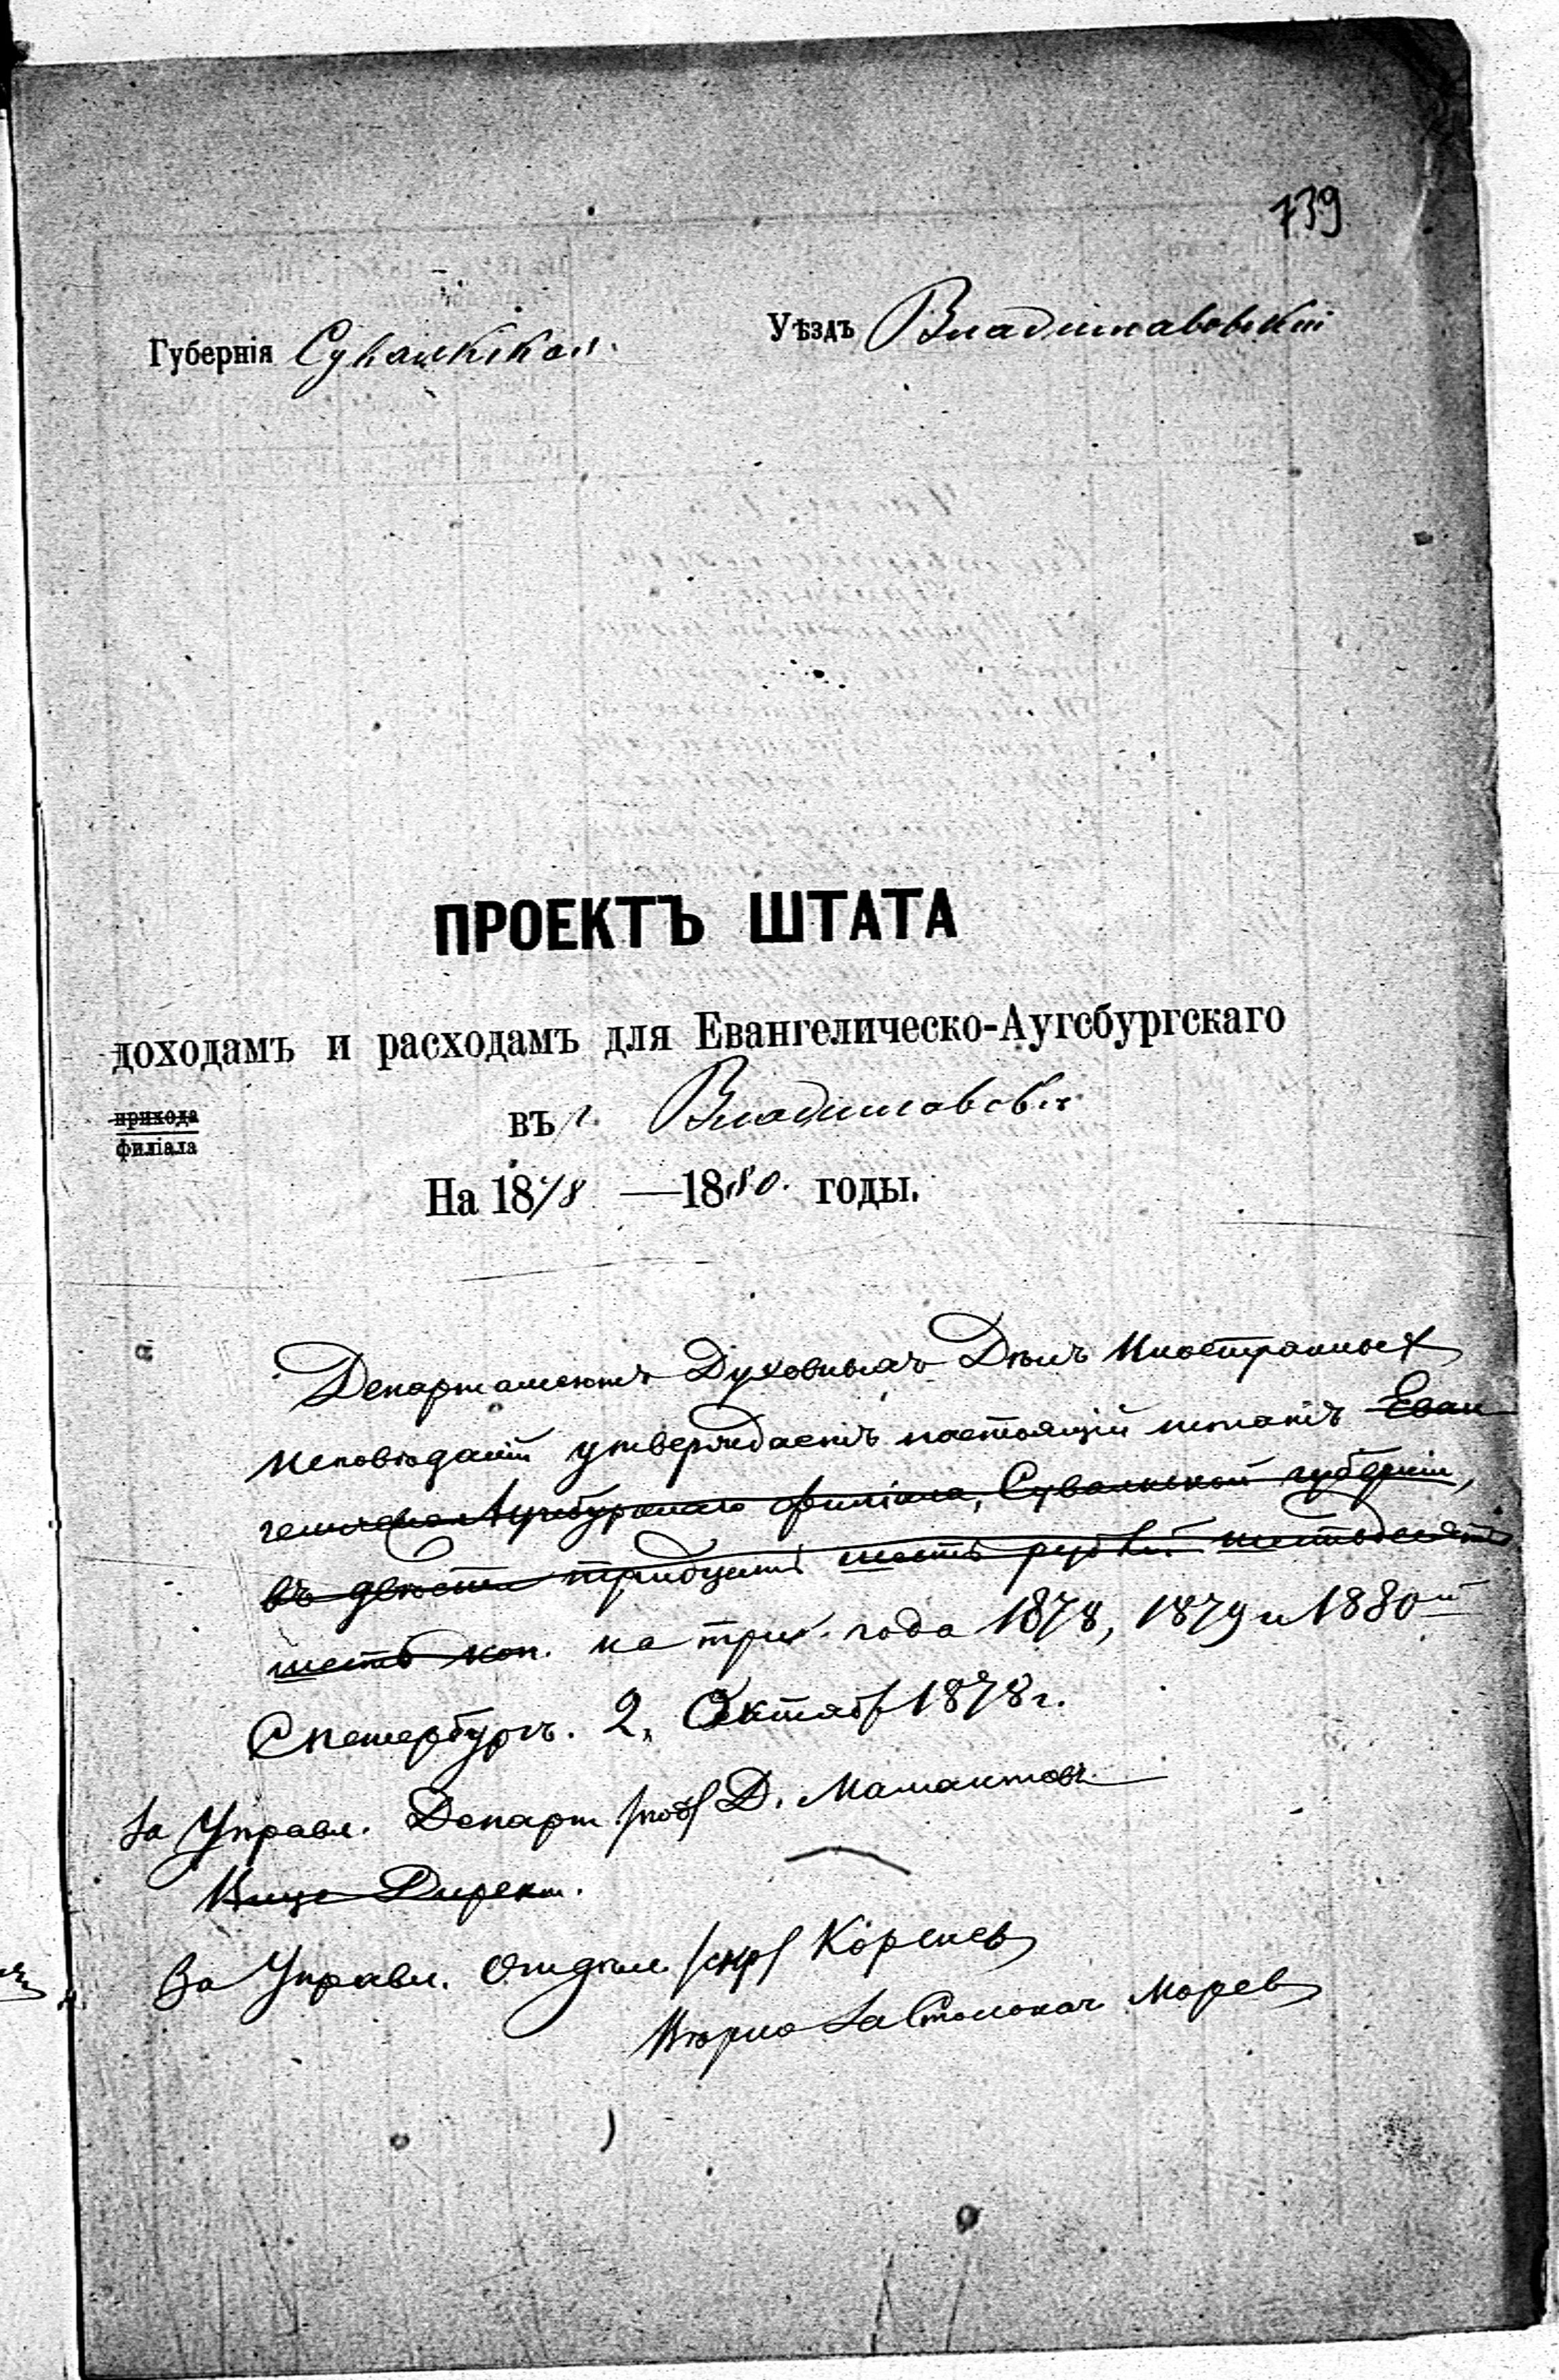 739
Губернія Сувалкская. Уѣздъ Владиславовскій
ПРОЕКТЪ ШТАТА
доходамъ и расходамъ для Евангелическо-Аугсбургскаго
прихода
филіала
въ г. Владиславовѣ
На 1878 — 1880. годы.
Департаментъ Духовныхъ Дѣлъ Иностранных
Исповѣданій утверждаетъ настоящій штатъ Еван
гелическо Аугсбургскаго филіала, Сувалкской губерніи,
въ двѣсти тридцать шесть рублей шестьдесятъ
шесть коп. на три года 1878, 1879 и 1880 й
СПетербургъ. 2, Октяб 1878 г.
За Управл. Департ. /под/ Д. Мамантовъ
Вице Директ.
За Управл. Отдѣл. /скр/ Коренев
Вѣрно За Столонач Морев